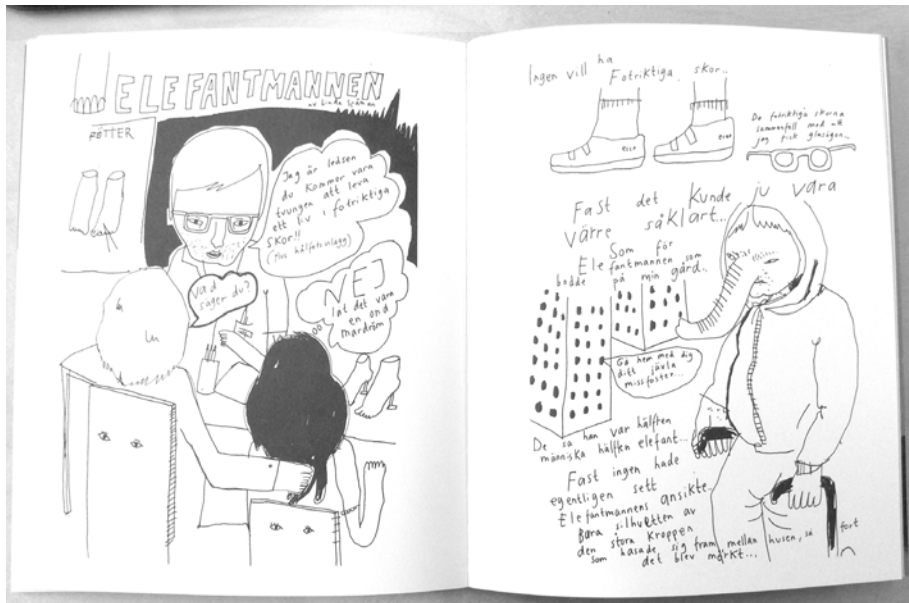 ELEFANTMANNEN
av Linda
FÖTTER
Jag är ledsen
du kommer vara
tvungen att leva
ett liv i fotriktiga
skor!!
(Plus hålfotsinlägg)
Vad
säger du?
NEJ
låt det vara
en ond
mardröm
Ingen vill ha
Fotriktiga skor..
ecco
ecco
De fotriktiga skorna
sammanföll med att
jag fick glasögon..
Fast det kunde ju vara
värre såklart...
Som för
Elefantmannen som
bodde på min gård..
Gå hem med dig
ditt jävla
missfoster...
De sa han var hälften
människa hälften elefant...
Fast ingen hade
egentligen sett
Elefantmannens ansikte..
Bara silhuetten av
den stora kroppen
som hasade sig fram mellan husen, så fort
det blev mörkt...